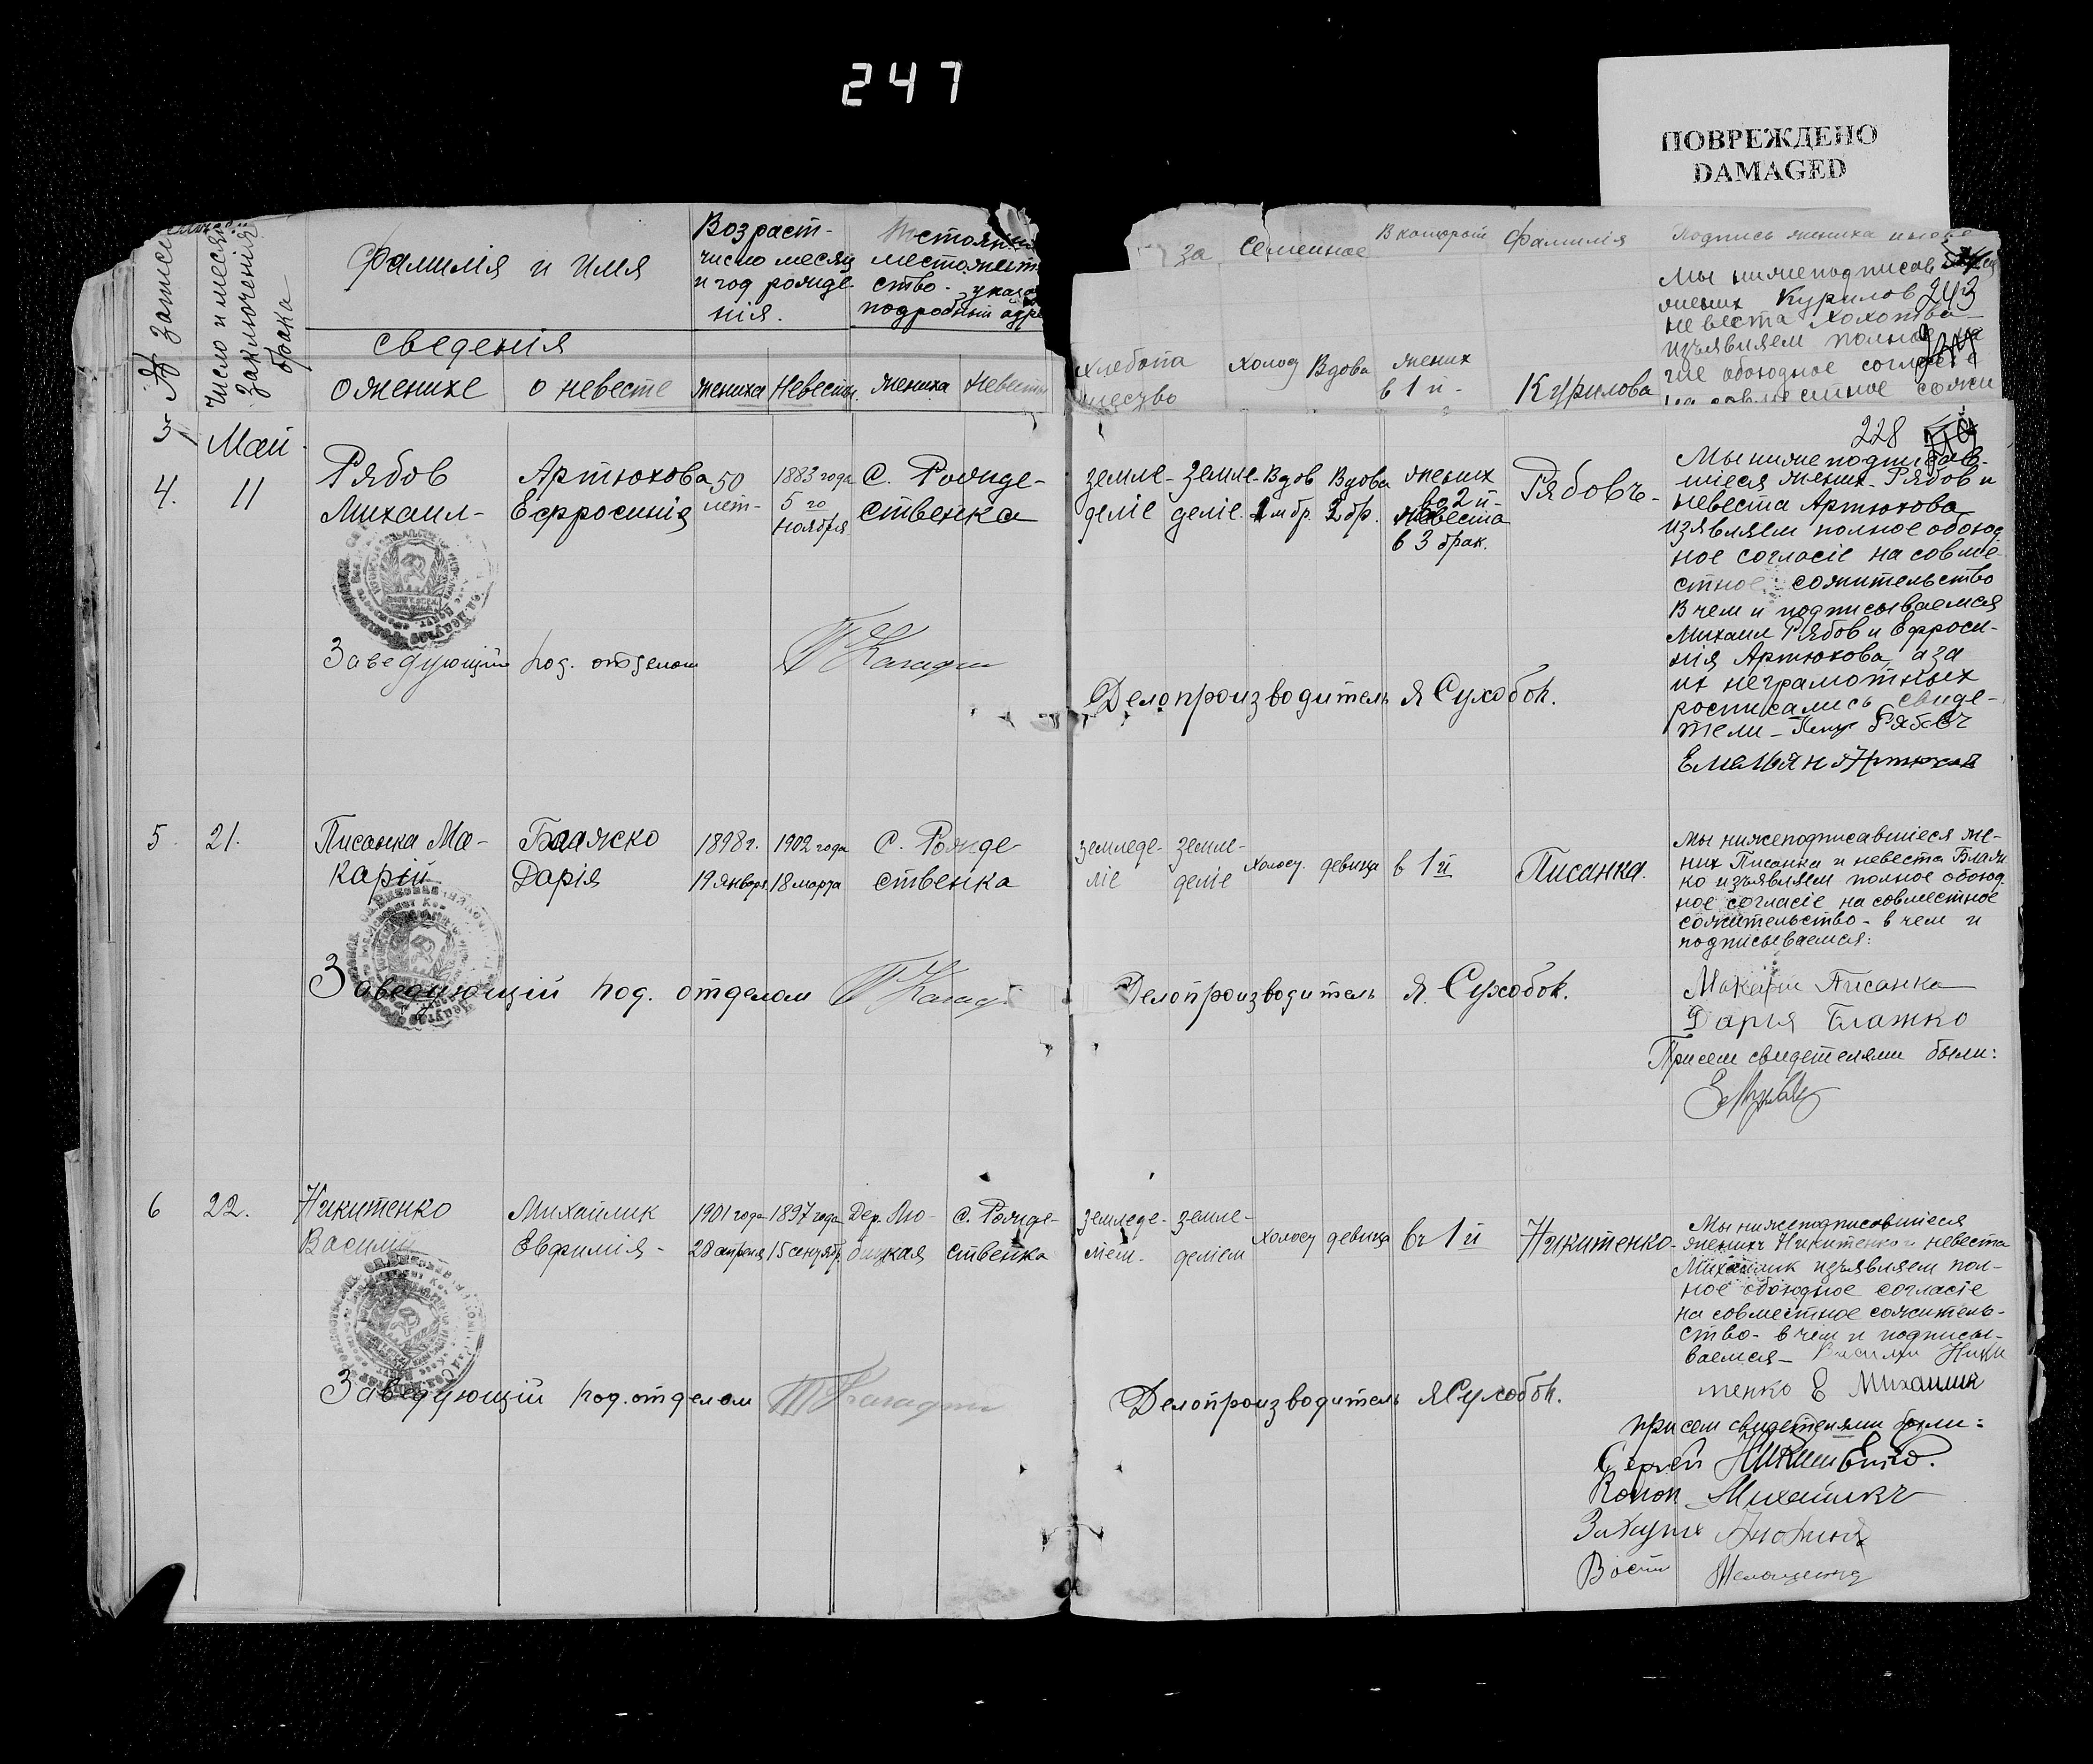 247
ПОВРЕЖДЕНО
DAMAGED
№ записи
Число и месяц
заключенія
брака
фамилія и имя
сведенія
о женихе
о невесте
Возраст-
число месяц
и год рожде-
нія.
жениха
Невесты.
местожит
ство- указ
подробный адре
жениха
Невесты
за
Семейное
В которой
Фамилія
Подпись жениха и
хлебопа
шество
холост
Вдова
жених
в 1й-
Курилова
Мы нижеподписав
жених Курилов
243
невеста Холотва
изъявляем полное
гие обоюдное согла
на совместное сожи
3
Май
228
4.
11
Рябов
Михаил-
Артюхова
Ефросинія
50
лет-
1883 года
5 го
ноября
С. Рожде-
ственка
земле-
деліе
земле-
деліе.
Вдов
Вдова
2 бр.
жених
во 2й-
невеста
в 3 брак.
Рябовъ-
Мы нижеподписав-
шіеся жених- Рябов и
невеста Артюхова
изявляем полное обоюд
ное согласіе на совме
стное сожительство
В чем и подписываемся
Михаил Рябов и Ефроси-
нія Артюхова, а за
их неграмотных
росписались свиде-
тели- Рябовъ
Емельян Артюхов
Заведующій под. отделом
Делопроизводитель Я Сухобок.
5.
21.
Писанка Ма-
карій
Блажско
Дарія
1898 г.
19 января
1902 года
18 марта
С. Рожде-
ственка
земледе-
ліе
земле-
деліе
холост.
девица
в 1й
Писанка.
Мы нижеподписавшіеся же-
них Писанка и невеста Блаж
ко изъявляем полное обоюд
ное согласіе на совместное
сожительство- в чем и
подписываемся:
Макарій Писанка
Дарія Блажко
При сем свидетелями были:
Заведующій под. отделом
Делопроизводитель Я. Сухобок.
6
22.
Никитенко
Василій
Михайлик
Евфимія-
1901 года
28 апреля
1897 года
15 сентяб.
Дер. Лю-
бицкая
С. Рожде-
ственка
земледе-
ліем.
земле-
деліем
холост
девица
въ 1й
Никитенко-
Мы нижеподписавшіеся
женихъ Никитенко и невеста
Михайлик изъявляем пол-
ное обоюдное согласіе
на совместное сожитель-
ство- в чем и подписы-
ваемся- Василій Ники
тенко Е Михайлик
при сем свидетелями были:
Сергей Никитенко.
Конон Михайликъ
Заведующій под. отделом
Делопроизводитель Я Сухобок.